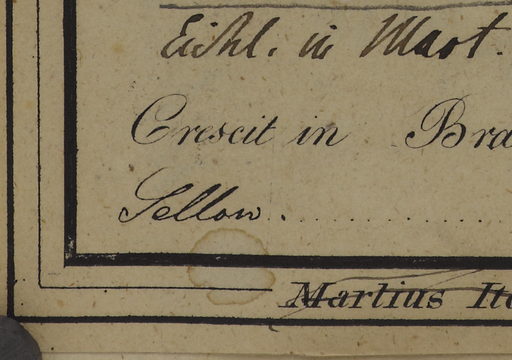 Eichl. in Mart.
Crescit in Bra
Sellow.
Martius It